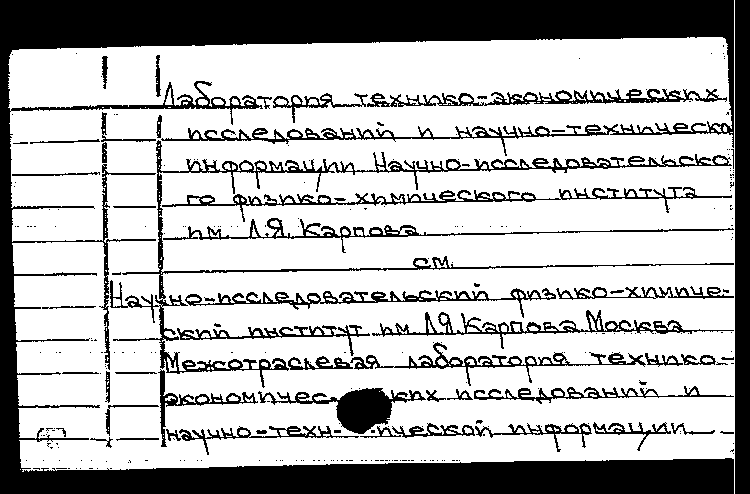 Лаборатория технико-экономических
исследований и научно-техническо
информации Научно-исследовательско
го физико-химического института
им. Л.Я. Карпова.
см.
Научно-исследовательский физико-химиче-
ский институт им Л.Я. Карпова Москва
Межотраслевая лаборатория технико-
экономичес- ких исследований и
научно-техн- ической информации.